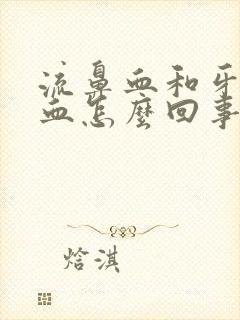 流鼻血和牙
血怎麼回事
焓淇